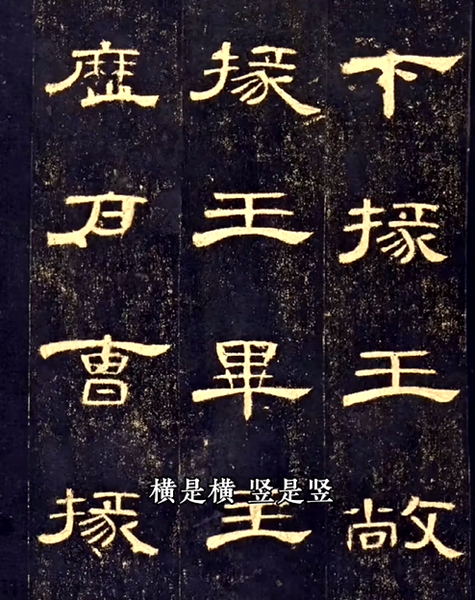 下掾王敞
掾王畢主
歷户曹掾
横是横 竖是竖